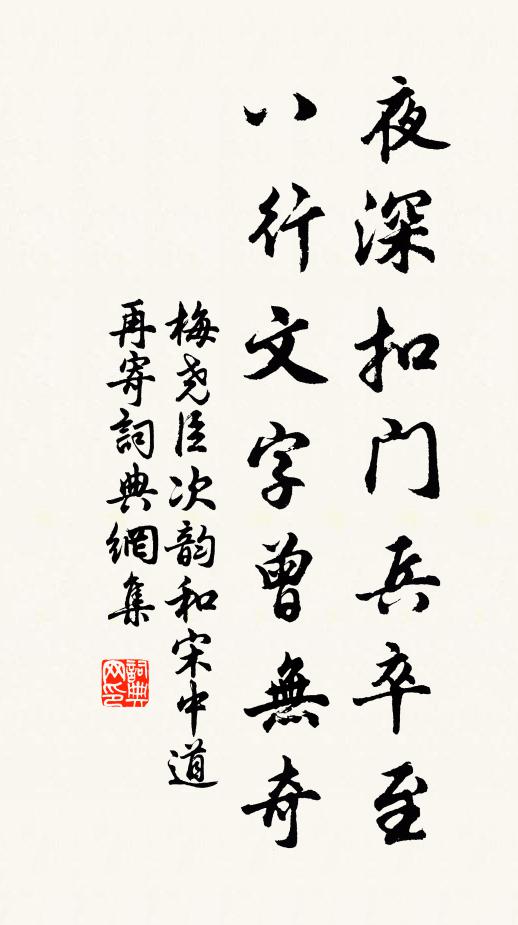 夜深扣门兵卒至
八行文字曾無奇
梅尧臣次韵和宋中道
再寄詞典網集
詞典网印